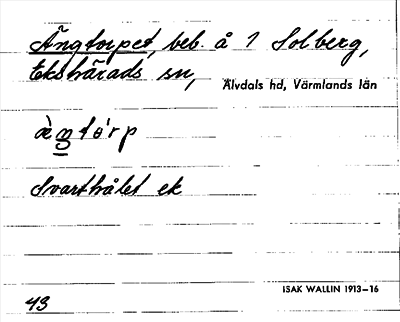 Ängtorpet, beb. å 1 Solberg,
Ekshärads sn, Älvdals hd, Värmlands län
Svarthålet ek
ISAK WALLIN 1913–16
43